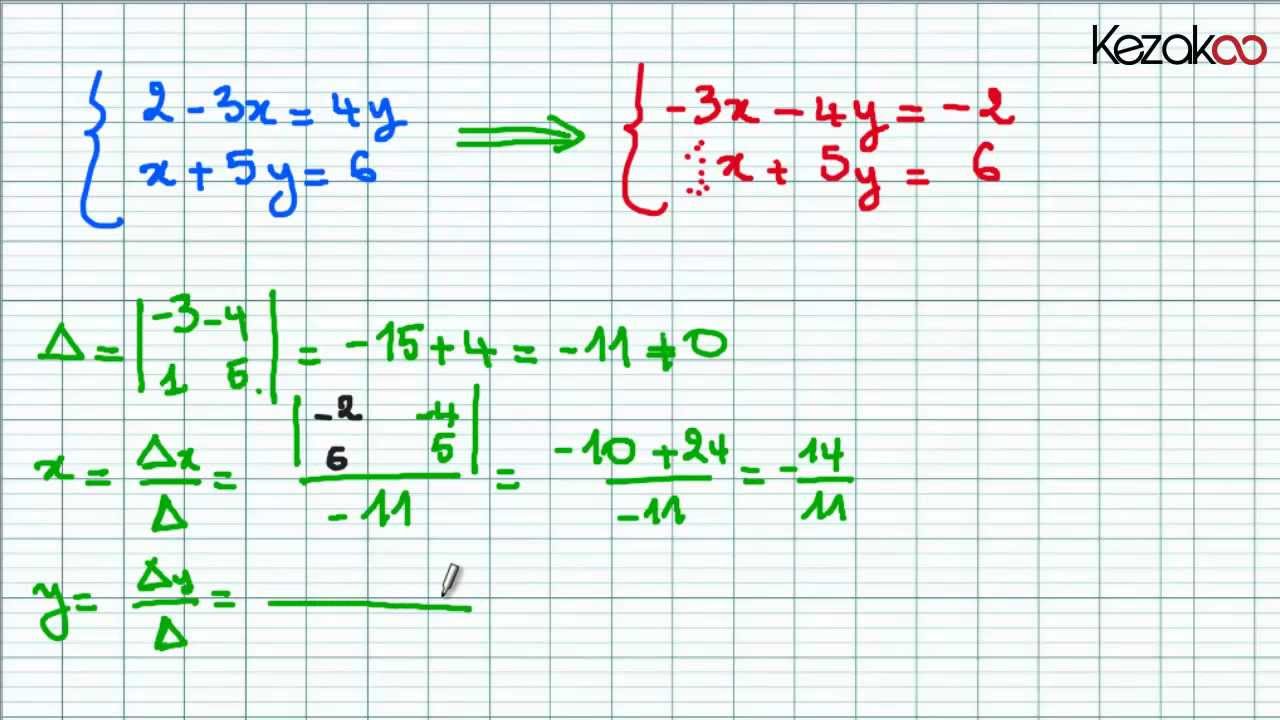 Kezakoo
{ 2 - 3x = 4y
x + 5y = 6
⟹
{ -3x - 4y = -2
x + 5y = 6
Δ = | -3 -4 |
| 1 5. | = -15 + 4 = -11 ≠ 0
x = Δx/Δ = | -2 -4 |
| 6 5 | / -11 = (-10 + 24)/-11 = -14/11
y = Δy/Δ =